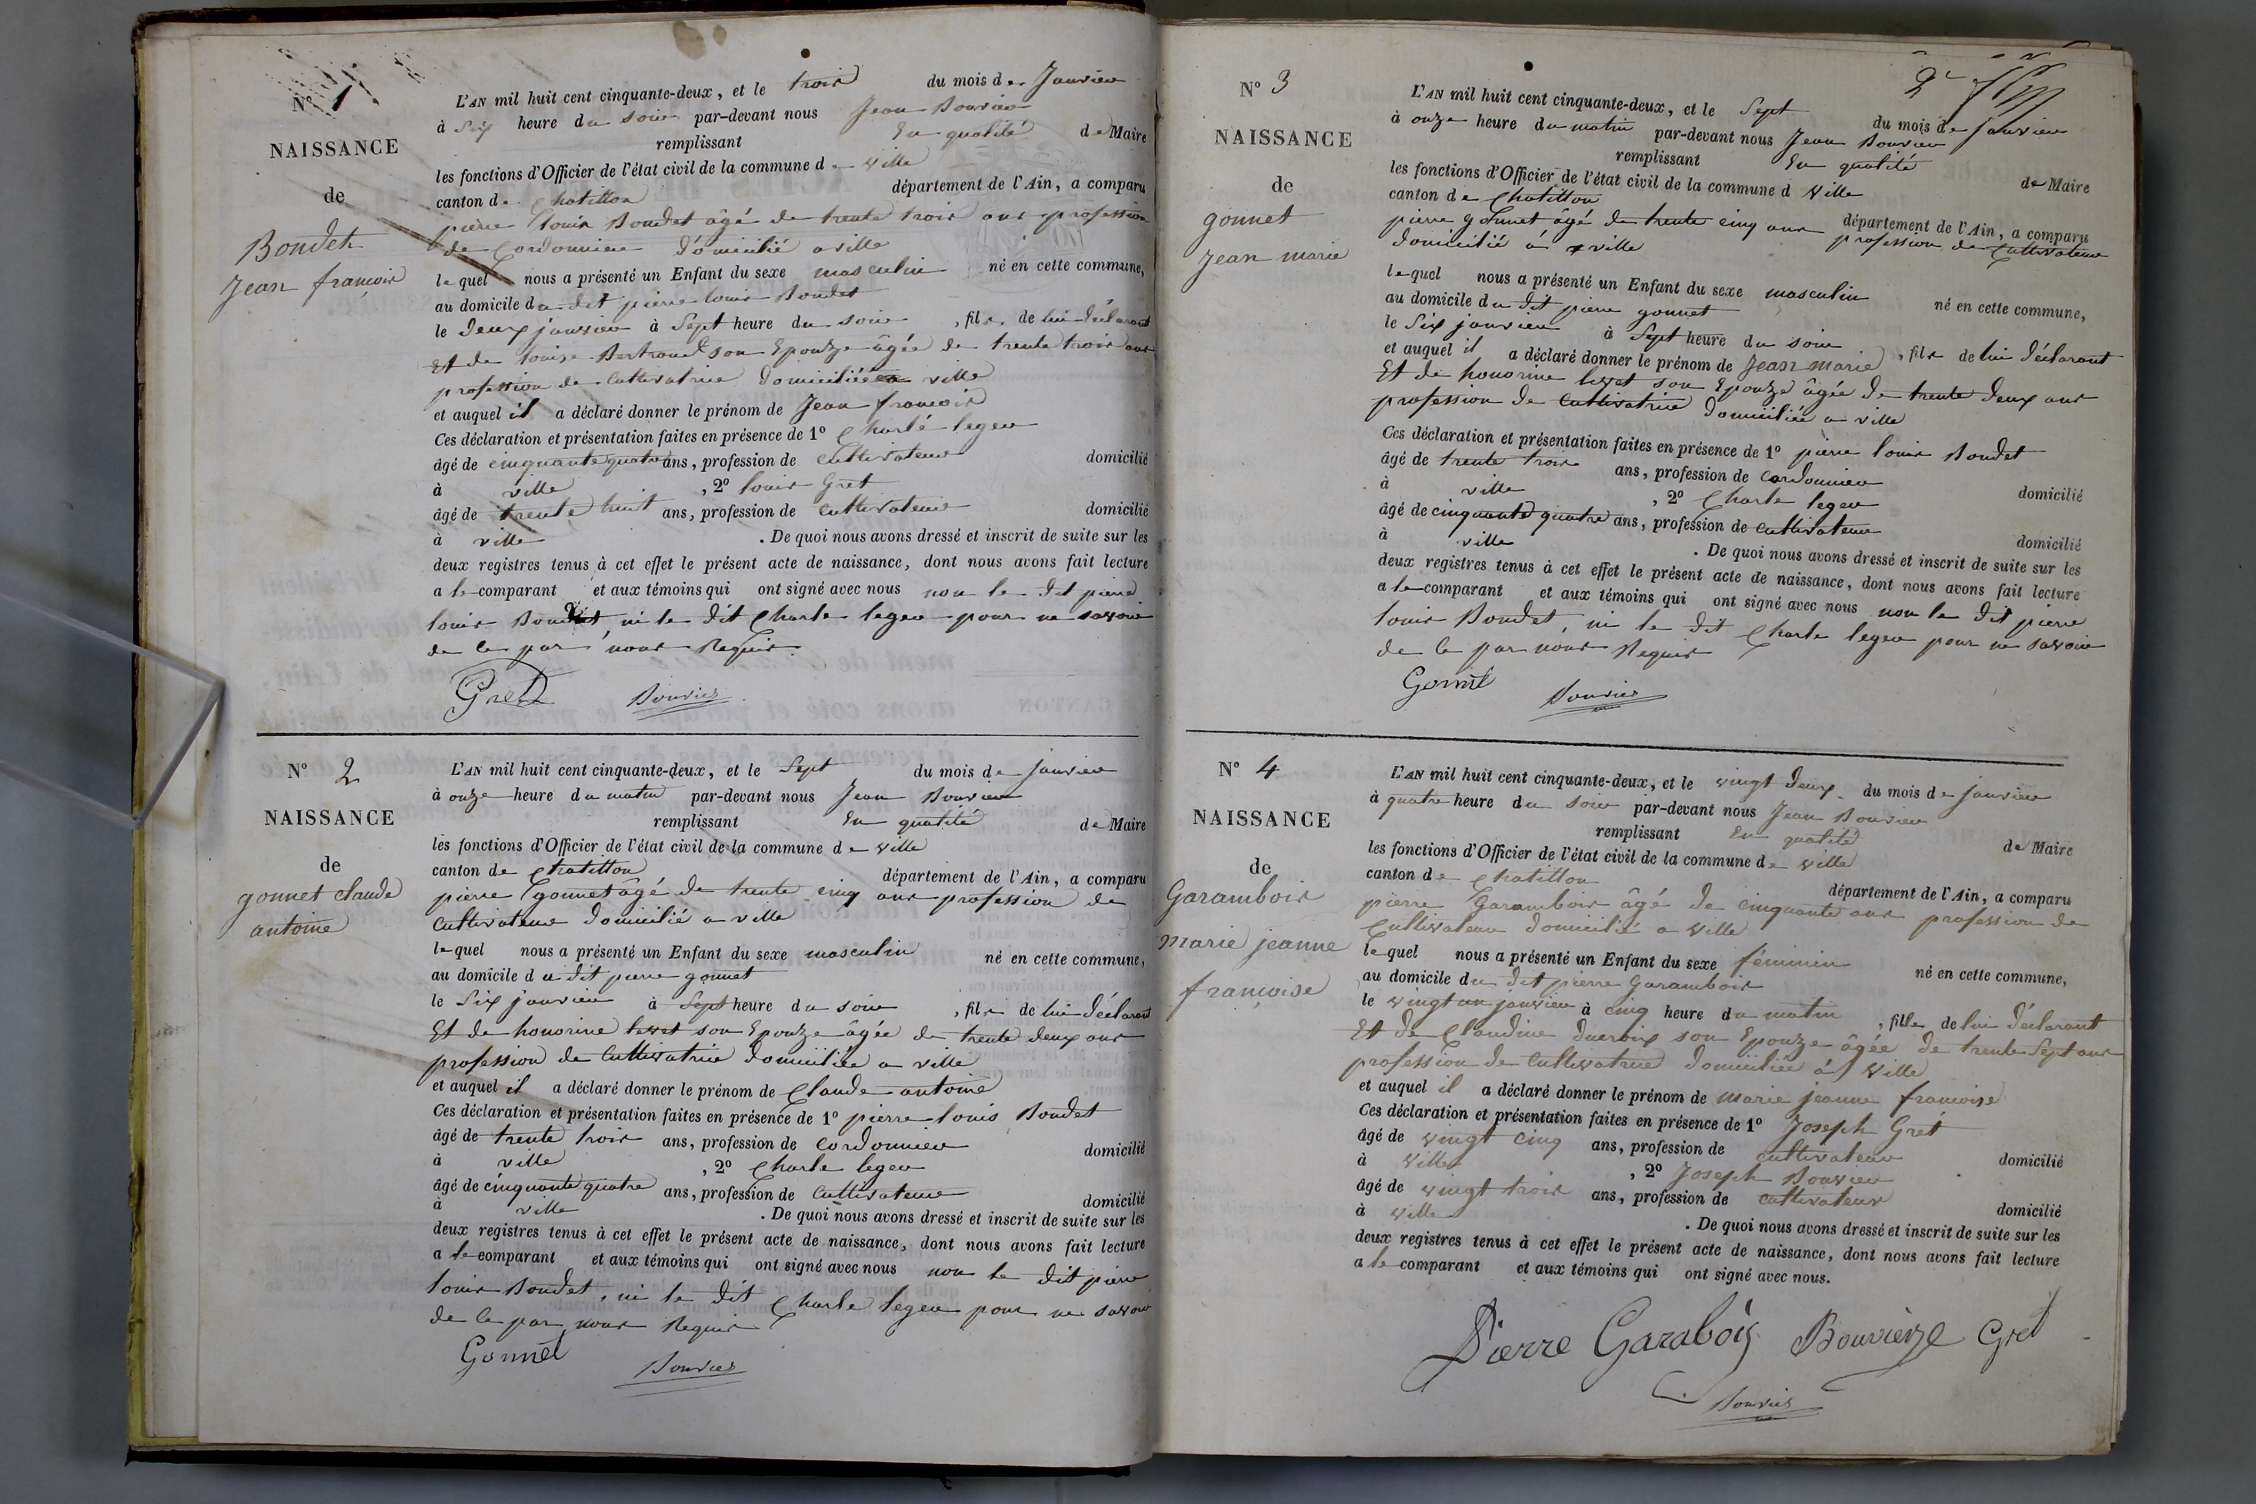 N° 1
NAISSANCE
de
Bondet
Jean françois
L'AN mil huit cent cinquante-deux, et le trois du mois de Janvier
à Six heure du soir par-devant nous Jean Bouvier
remplissant En qualité de Maire
les fonctions d'Officier de l'état civil de la commune de ville
canton de Chatillon département de l'Ain, a comparu
pierre louis Bondet âgé de trente trois ans profession
de Cordonnier domicilié a ville
lequel nous a présenté un Enfant du sexe masculin né en cette commune,
au domicile du dit pierre louis Bondet
le deux janvier à Sept heure du soir, fils de lui déclarant
Et de louise Bertrand son Epouze âgée de trente trois ans
profession de Cultivatrice domiciliée a ville
et auquel il a déclaré donner le prénom de Jean françois
Ces déclaration et présentation faites en présence de 1° Charle leger
âgé de cinquante quatre ans, profession de cultivateur domicilié
à ville, 2° louis Gret
âgé de trente huit ans, profession de cultivateur domicilié
à ville. De quoi nous avons dressé et inscrit de suite sur les
deux registres tenus à cet effet le présent acte de naissance, dont nous avons fait lecture
a le comparant et aux témoins qui ont signé avec nous non le dit pierre
louis Bondet, ni le dit Charle leger pour ne savoir
de ce par nous Requis.
Gret Bouvier
N° 2
NAISSANCE
de
gonnet claude
antoine
L'AN mil huit cent cinquante-deux, et le Sept du mois de janvier
à onze heure du matin par-devant nous Jean Bouvier
remplissant En qualité de Maire
les fonctions d'Officier de l'état civil de la commune de ville
canton de Chatillon département de l'Ain, a comparu
pierre gonnet âgé de trente cinq ans profession de
Cultivateur domicilié a ville
lequel nous a présenté un Enfant du sexe masculin né en cette commune,
au domicile du dit pierre gonnet
le Six janvier à Sept heure du soir, fils de lui déclarant
Et de honorine son Epouze âgée de trente deux ans
profession de Cultivatrice domiciliée a ville
et auquel il a déclaré donner le prénom de Claude antoine
Ces déclaration et présentation faites en présence de 1° pierre louis Bondet
âgé de trente trois ans, profession de cordonnier domicilié
à ville, 2° Charle leger
âgé de cinquante quatre ans, profession de Cultivateur domicilié
à ville. De quoi nous avons dressé et inscrit de suite sur les
deux registres tenus à cet effet le présent acte de naissance, dont nous avons fait lecture
a le comparant et aux témoins qui ont signé avec nous non le dit pierre
louis Bondet, ni le dit Charle leger pour ne savoir
de ce par nous Requis
Gonnet Bouvier
2e
N° 3
NAISSANCE
de
gonnet
Jean marie
L'AN mil huit cent cinquante-deux, et le Sept du mois de janvier
à onze heure du matin par-devant nous Jean Bouvier
remplissant En qualité de Maire
les fonctions d'Officier de l'état civil de la commune d Ville
canton de Chatillon département de l'Ain, a comparu
pierre gonnet âgé de trente cinq ans profession de Cultivateur
domicilié à ville
lequel nous a présenté un Enfant du sexe masculin né en cette commune,
au domicile du dit pierre gonnet
le Six janvier à Sept heure du soir, fils de lui déclarant
et auquel il a déclaré donner le prénom de Jean marie
Et de honorine son Epouze âgée de trente deux ans
profession de Cultivatrice domiciliée a ville
Ces déclaration et présentation faites en présence de 1° pierre louis Bondet
âgé de trente trois ans, profession de cordonnier domicilié
à ville, 2° Charle leger
âgé de cinquante quatre ans, profession de cultivateur domicilié
à ville. De quoi nous avons dressé et inscrit de suite sur les
deux registres tenus à cet effet le présent acte de naissance, dont nous avons fait lecture
a le comparant et aux témoins qui ont signé avec nous non le dit pierre
louis Bondet, ni le dit Charle leger pour ne savoir
de ce par nous Requis
Gonnet Bouvier
N° 4
NAISSANCE
de
Garambois
marie jeanne
françoise
L'AN mil huit cent cinquante-deux, et le vingt deux du mois de janvier
à quatre heure du soir par-devant nous Jean Bouvier
remplissant En qualité de Maire
les fonctions d'Officier de l'état civil de la commune de ville
canton de Chatillon département de l'Ain, a comparu
pierre Garambois âgé de cinquante ans profession de
Cultivateur domicilié a ville
lequel nous a présenté un Enfant du sexe féminin né en cette commune,
au domicile du dit pierre Garambois
le vingt un janvier à cinq heure du matin, fille de lui déclarant
Et de Claudine ducroix son Epouze âgée de trente Sept ans
profession de cultivatrice domiciliée à Ville
et auquel il a déclaré donner le prénom de marie jeanne françoise
Ces déclaration et présentation faites en présence de 1° Joseph Gret
âgé de vingt cinq ans, profession de cultivateur domicilié
à Ville, 2° Joseph Bouvier
âgé de vingt trois ans, profession de cultivateur domicilié
à Ville. De quoi nous avons dressé et inscrit de suite sur les
deux registres tenus à cet effet le présent acte de naissance, dont nous avons fait lecture
a le comparant et aux témoins qui ont signé avec nous.
Pierre Garabois Gret
Bouvier